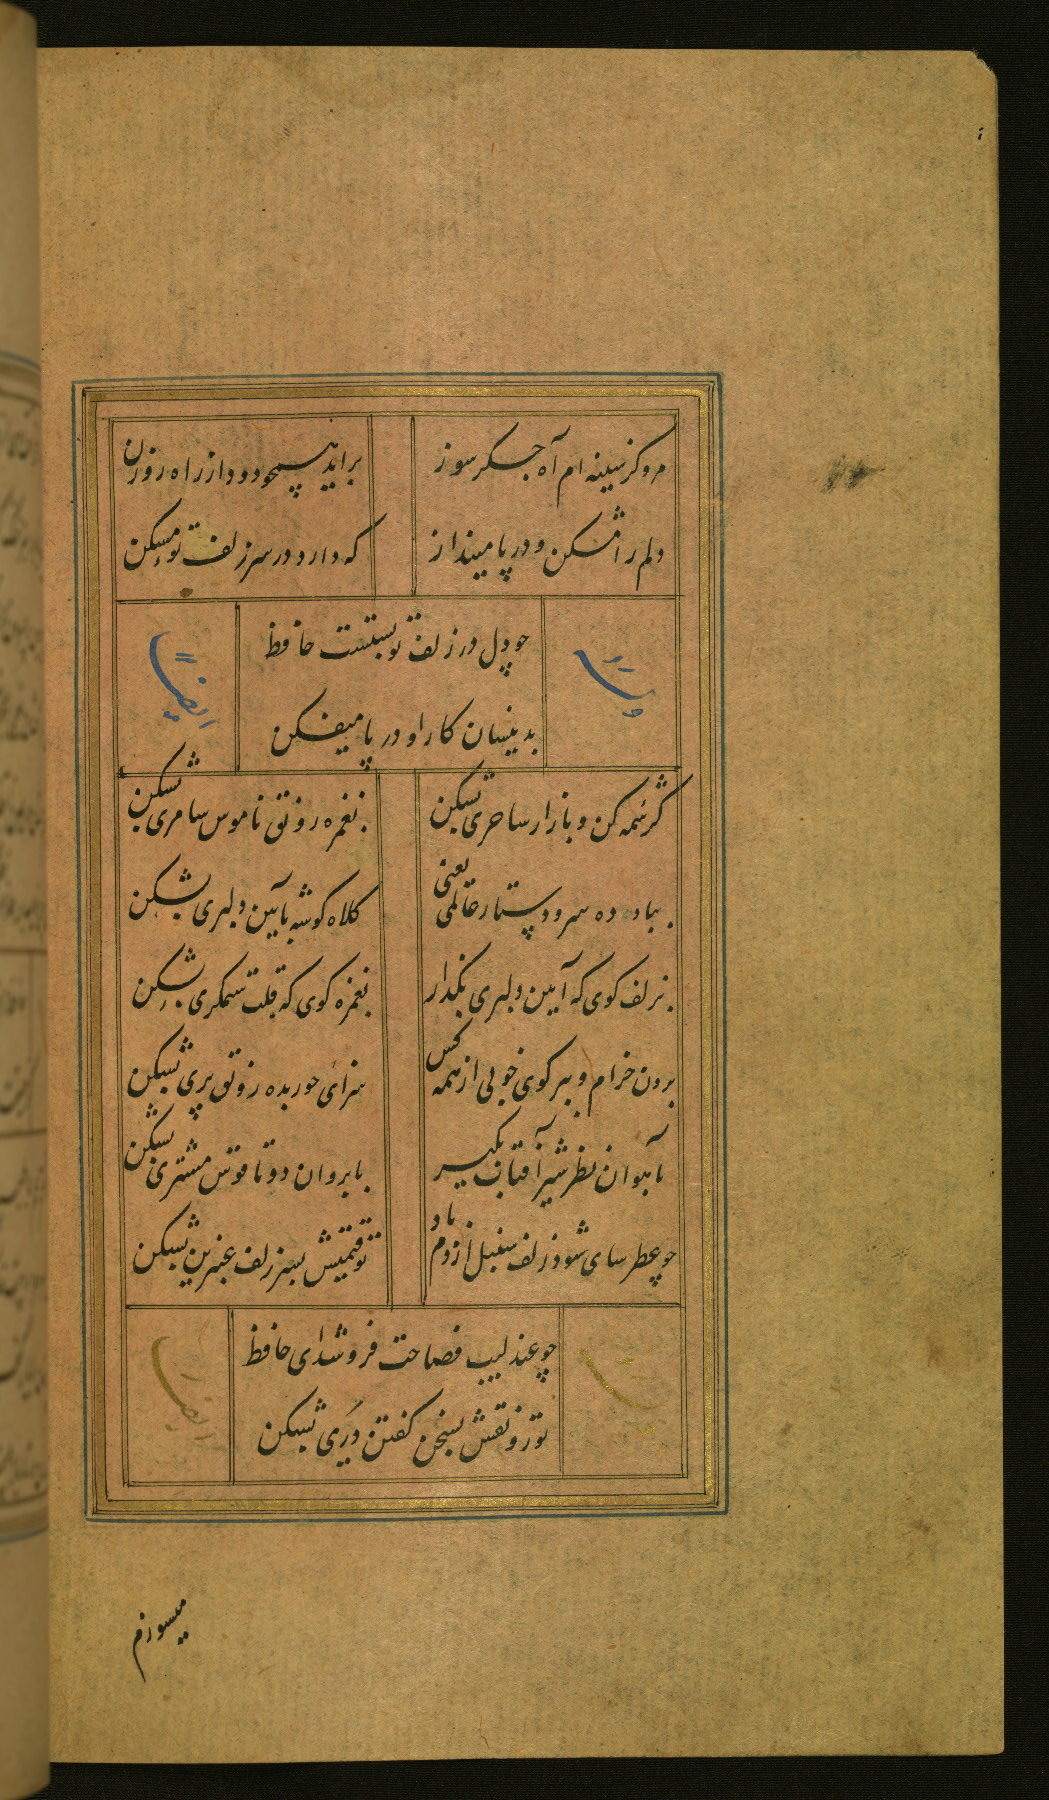 مرو کز سینه ام آه جگر سوز
برآید همچو دود از راه روزن
دلم را مشکن و در پا مینداز
که دارد در سر زلف تو مسکن
چو دل در زلف تو بستست حافظ
بدینسان کار او در پا میفکن
وله
ایضا
کرشمه کن و بازار ساحری بشکن
بغمزه رونق ناموس سامری بشکن
بباد ده سر و دستار عالمی یعنی
کلاه کوشه بآیین دلبری بشکن
بزلف کوی که آیین دلبری بکذار
بغمزه کوی که قلب ستمکری بشکن
برون خرام و ببر کوی خوبی از همه کس
سزای حور بده رونق پری بشکن
بآهوان نظر شیر آفتاب بکیر
بابروان دوتا قوس مشتری بشکن
چو عطر سای شود زلف سنبل از دم باد
تو قیمتش بسر زلف عنبرین بشکن
چو عندلیب فصاحت فروشد ای حافظ
تو رونقش بسخن کفتن دری بشکن
وله
ایضا
میسوزم